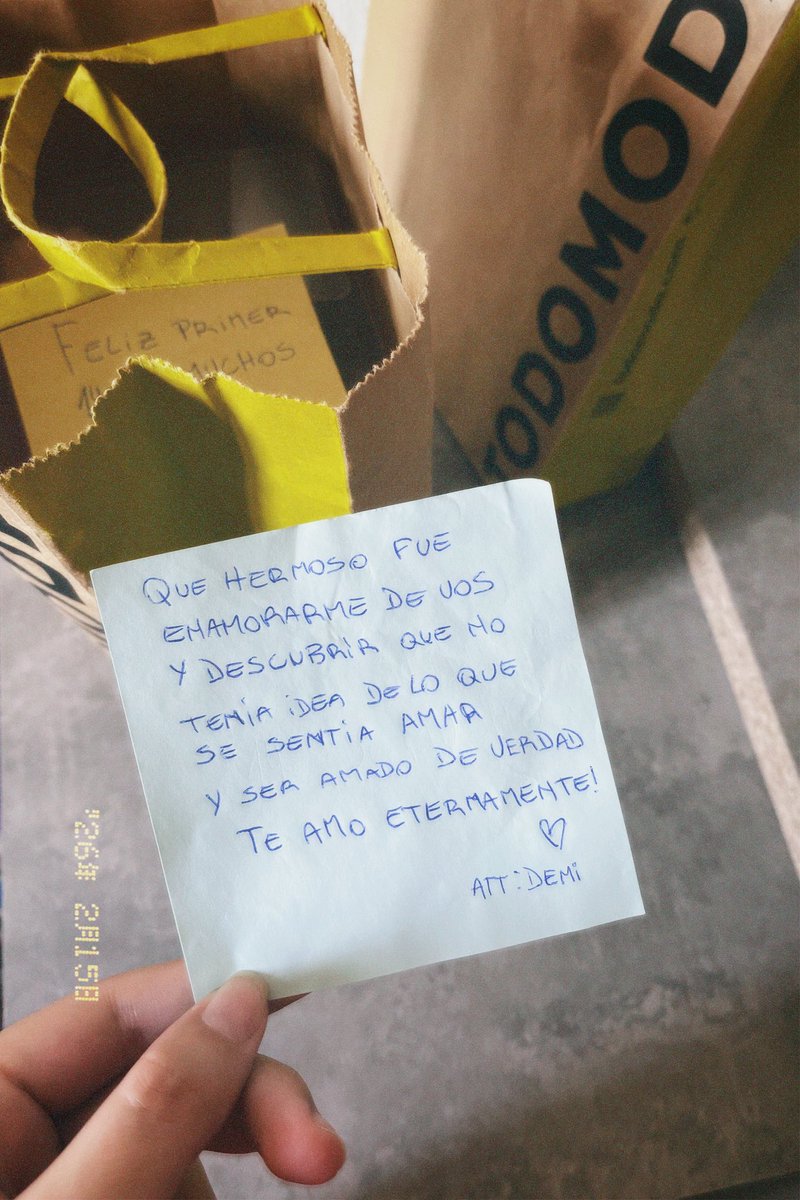 FELIZ PRIMER
14 MUCHOS
TODOMOD
QUE HERMOSO FUE
ENAMORARME DE VOS
Y DESCUBRIR QUE NO
TENIA IDEA DE LO QUE
SE SENTIA AMAR
Y SER AMADO DE VERDAD
TE AMO ETERNAMENTE!
ATT: DEMI
'26年 2月15日